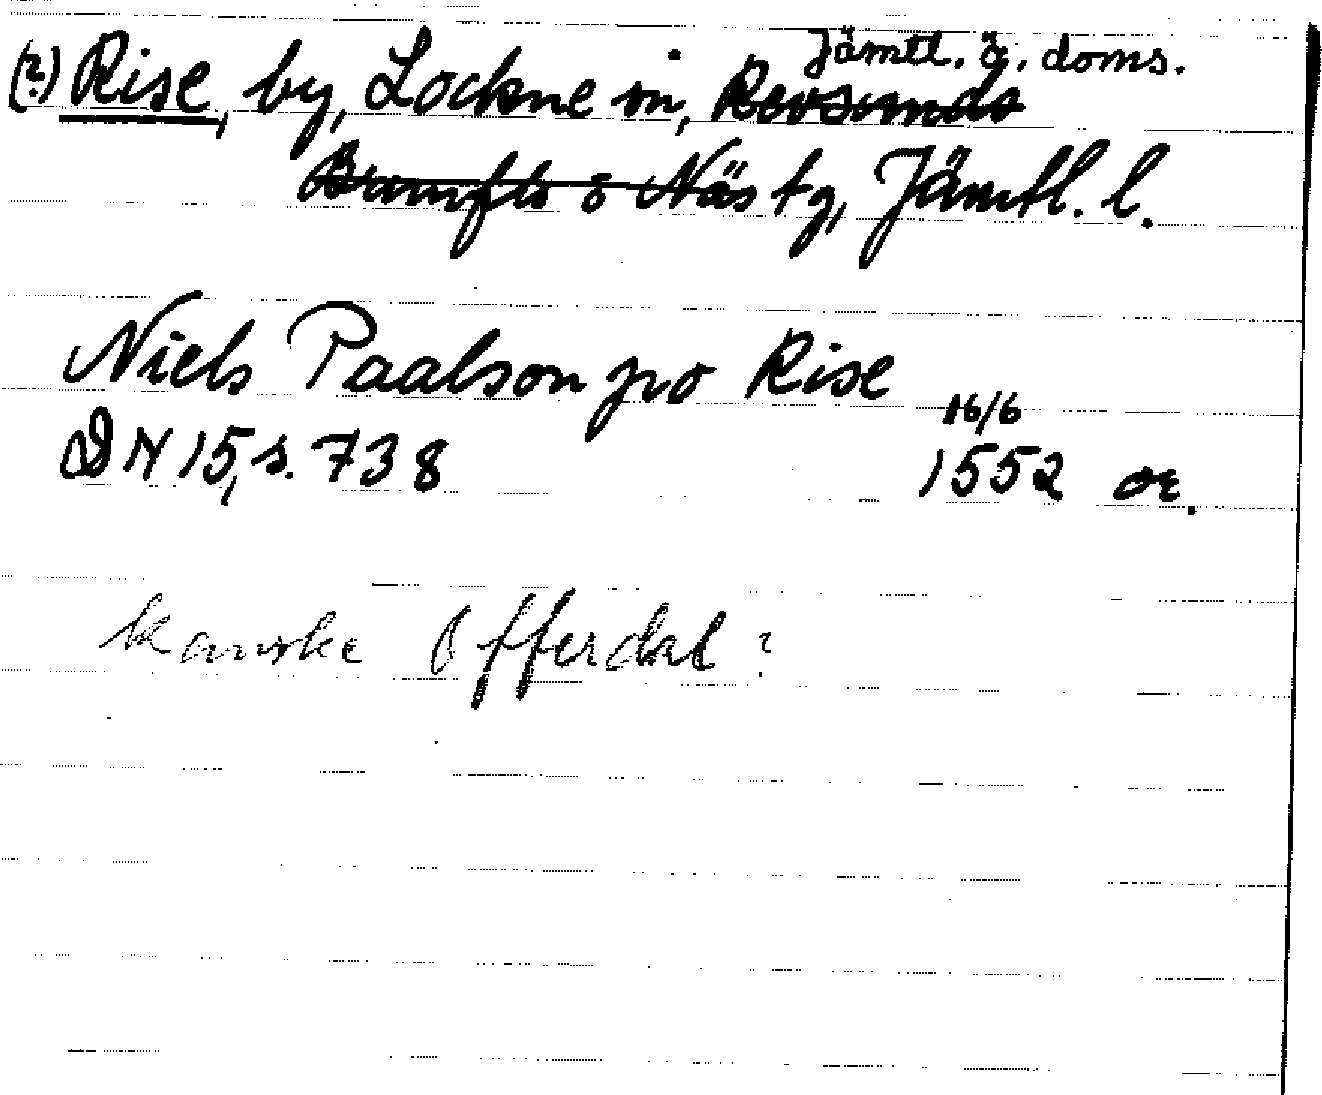 Jämtl. ö. doms.
(?) Rise, by, Lockne sn, Revsunds
Brunflo o Näs tg, Jämtl. l.
Niels Paalson po Rise
16/6
DN 15, s. 738 1552 or.
kanske Offerdal?